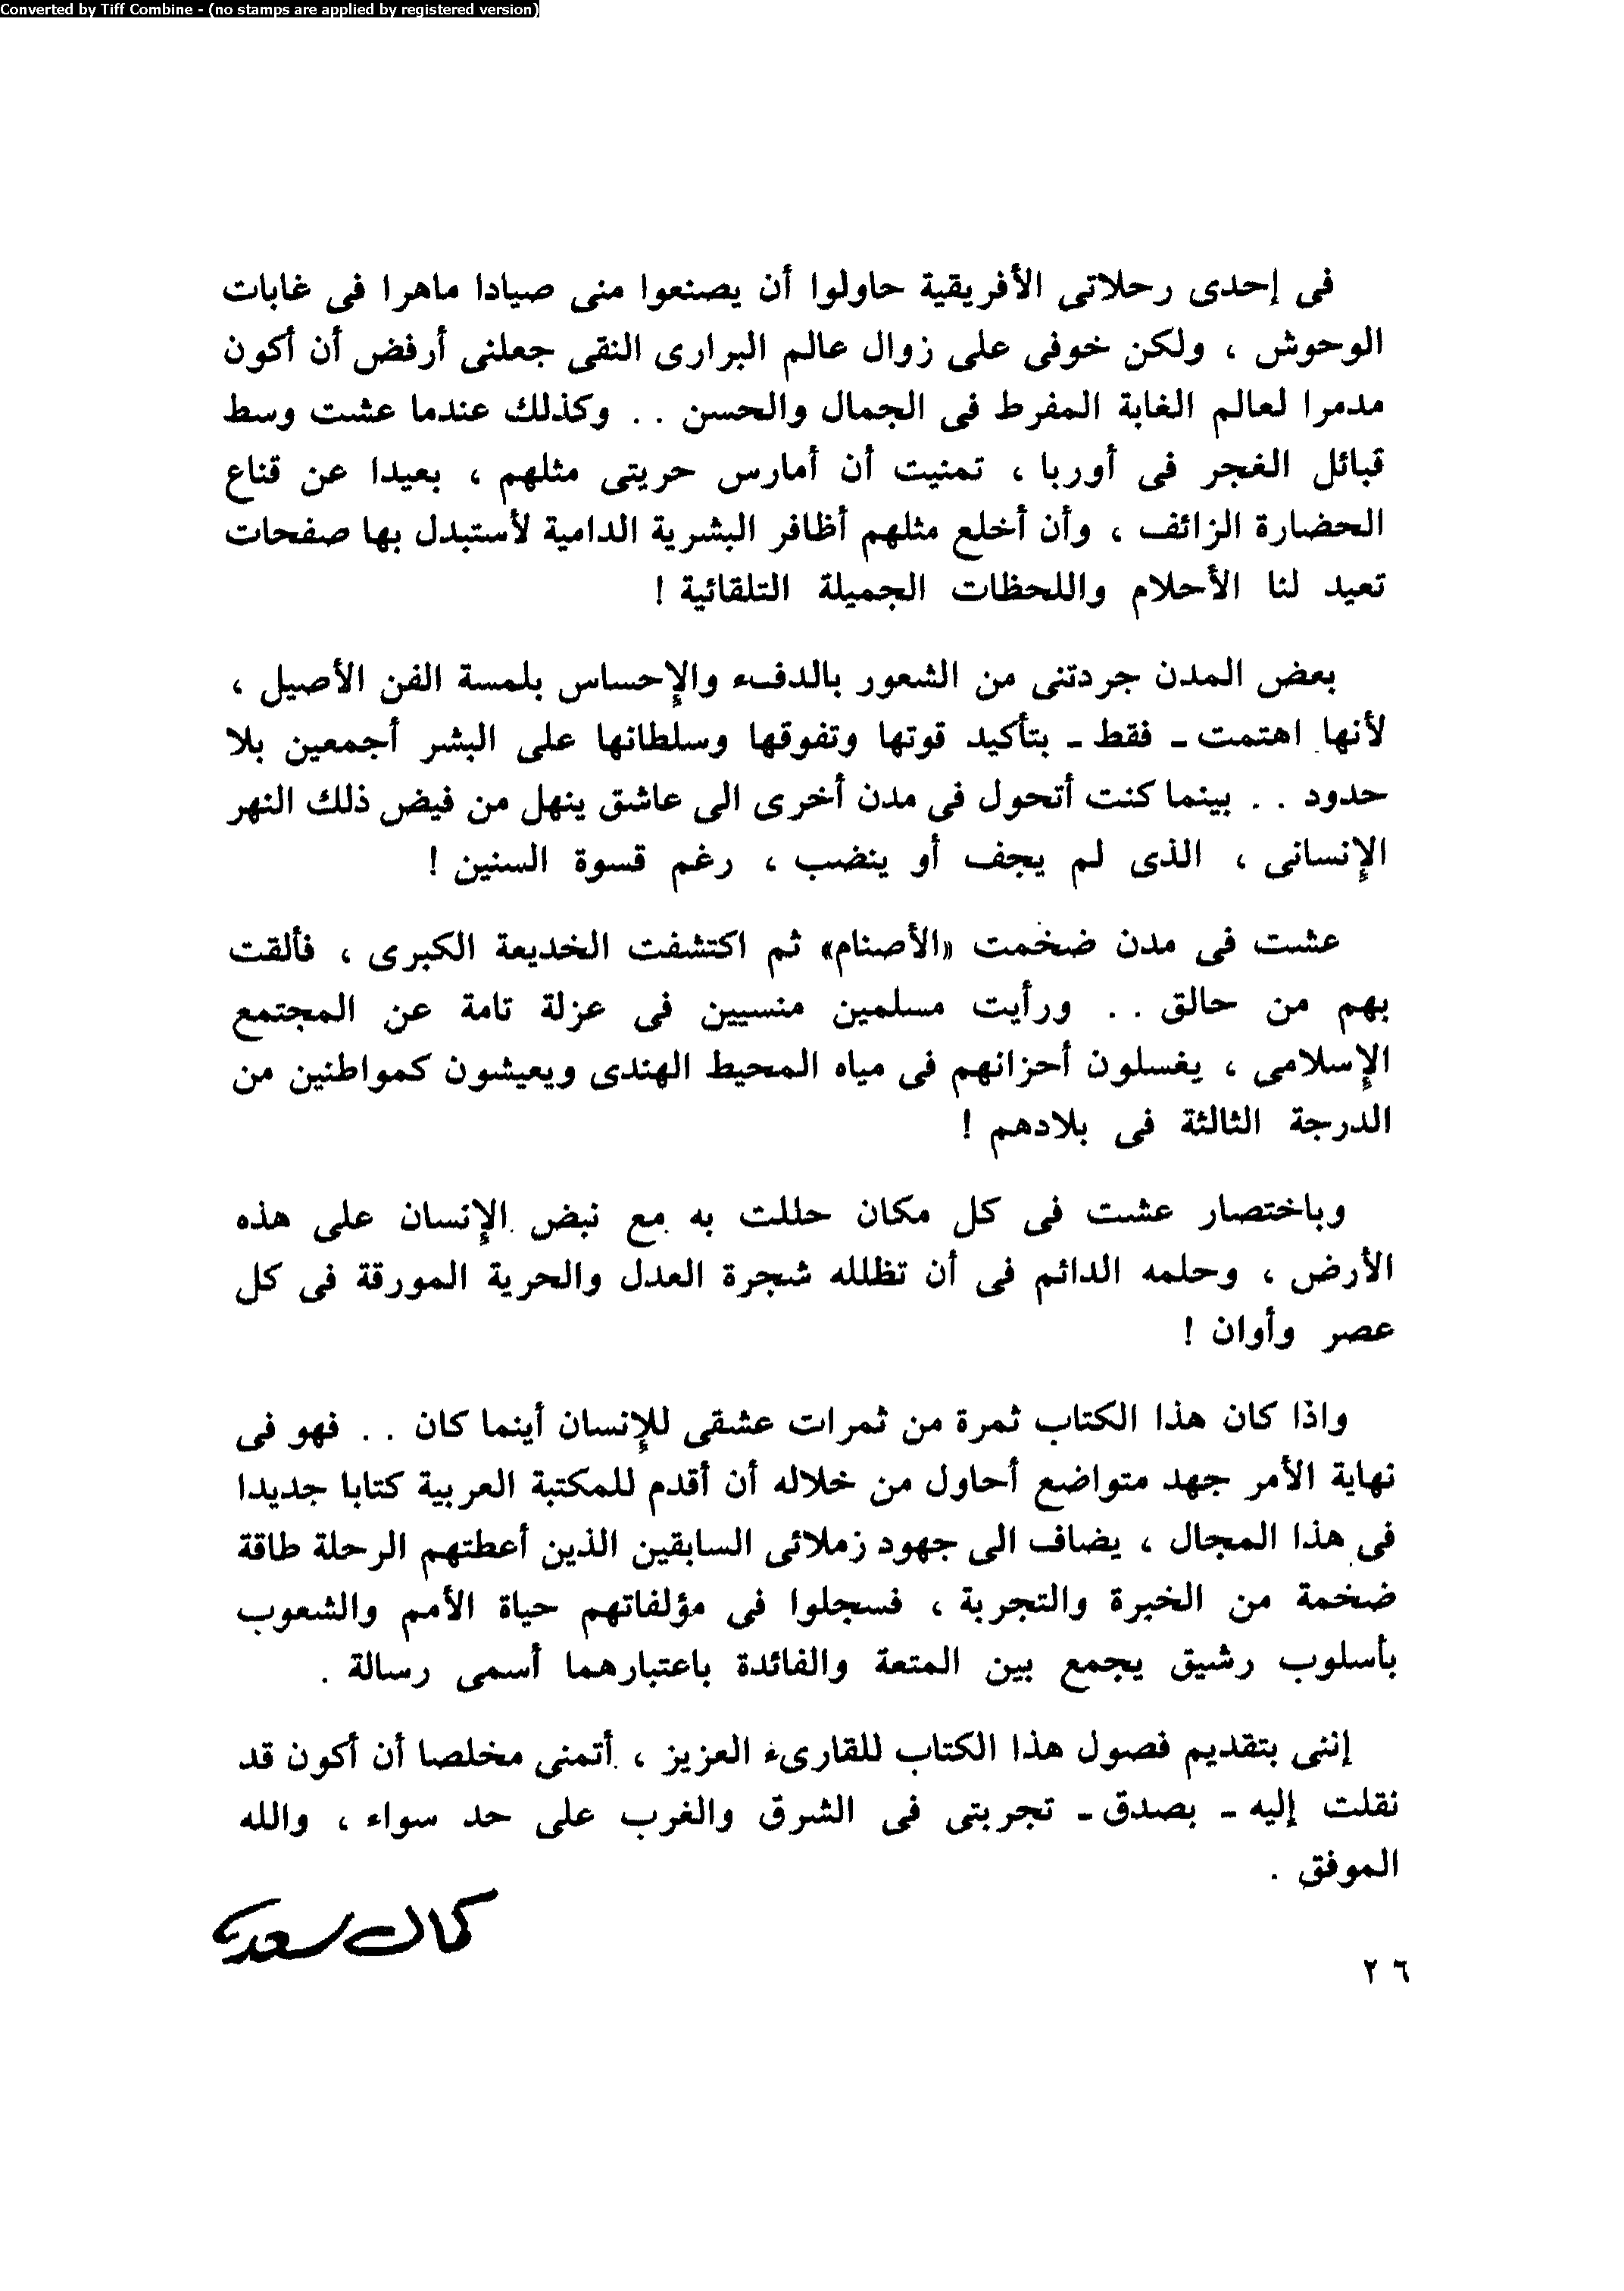 Converted by Tiff Combine - (no stamps are applied by registered version)
فى إحدى رحلاتى الأفريقية حاولوا أن يصنعوا منى صيادا ماهرا فى غابات
الوحوش ، ولكن خوفى على زوال عالم البرارى النقى جعلنى أرفض أن أكون
مدمرا لعالم الغابة المفرط فى الجمال والحسن . . وكذلك عندما عشت وسط
قبائل الغجر فى أوربا ، تمنيت أن أمارس حريتى مثلهم ، بعيدا عن قناع
الحضارة الزائف ، وأن أخلع مثلهم أظافر البشرية الدامية لأستبدل بها صفحات
تعيد لنا الأحلام واللحظات الجميلة التلقائية !
بعض المدن جردتنى من الشعور بالدفء والإحساس بلمسة الفن الأصيل ،
لأنها اهتمت ـ فقط ـ بتأكيد قوتها وتفوقها وسلطانها على البشر أجمعين بلا
حدود . . بينما كنت أتحول فى مدن أخرى الى عاشق ينهل من فيض ذلك النهر
الإنسانى ، الذى لم يجف أو ينضب ، رغم قسوة السنين !
عشت فى مدن ضخمت «الأصنام» ثم اكتشفت الخديعة الكبرى ، فألقت
بهم من حالق . . ورأيت مسلمين منسيين فى عزلة تامة عن المجتمع
الإسلامى ، يغسلون أحزانهم فى مياه المحيط الهندى ويعيشون كمواطنين من
الدرجة الثالثة فى بلادهم !
وباختصار عشت فى كل مكان حللت به مع نبض الإنسان على هذه
الأرض ، وحلمه الدائم فى أن تظلله شجرة العدل والحرية المورقة فى كل
عصر وأوان !
واذا كان هذا الكتاب ثمرة من ثمرات عشقى للإنسان أينما كان . . فهو فى
نهاية الأمر جهد متواضع أحاول من خلاله أن أقدم للمكتبة العربية كتابا جديدا
فى هذا المجال ، يضاف الى جهود زملائى السابقين الذين أعطتهم الرحلة طاقة
ضخمة من الخبرة والتجربة ، فسجلوا فى مؤلفاتهم حياة الأمم والشعوب
بأسلوب رشيق يجمع بين المتعة والفائدة باعتبارهما أسمى رسالة .
إننى بتقديم فصول هذا الكتاب للقارىء العزيز ، أتمنى مخلصا أن أكون قد
نقلت إليه ـ بصدق ـ تجربتى فى الشرق والغرب على حد سواء ، والله
الموفق .
كمال سعد
٢٦